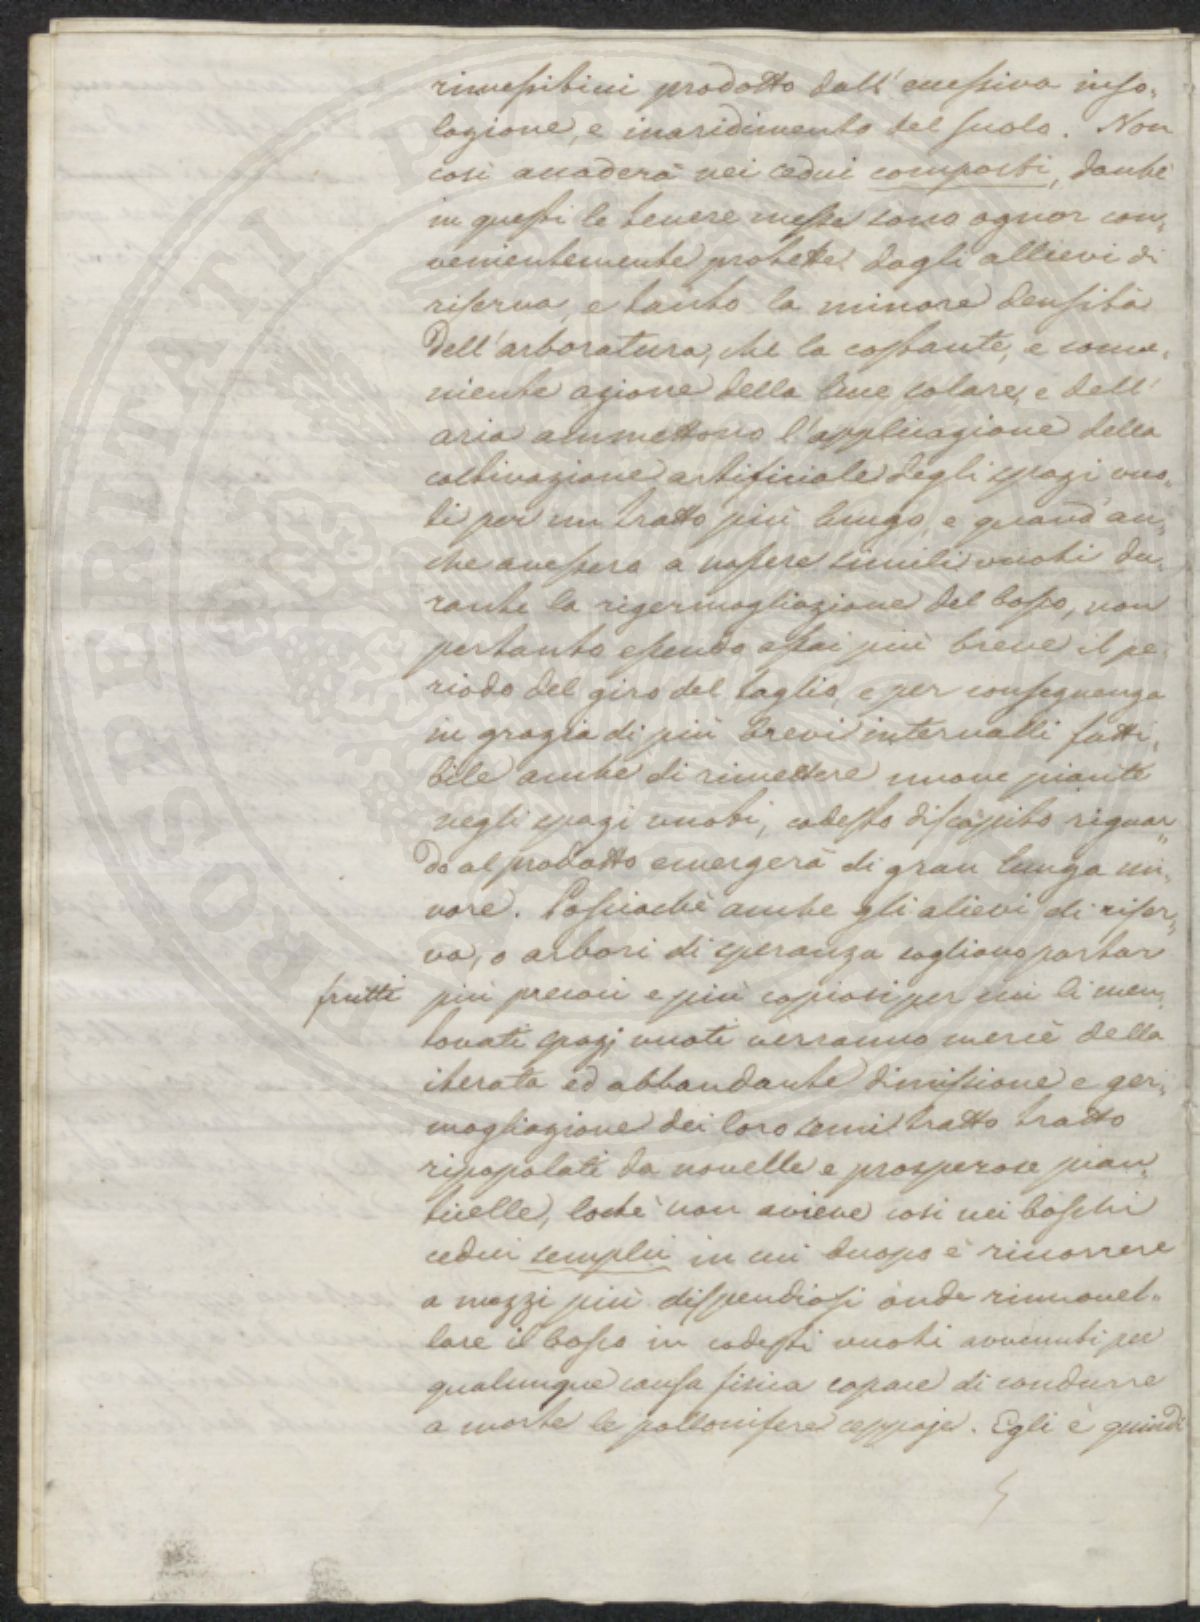 prodotto dall' eccessiva inso,
lazione, e inaridimento del suolo. Non
così accaderà nei cedui composti, dacchè
in questi le tenere messe sono ognor con,
venientemente protette dagli allievi di
riserva, e tanto la minore densità
dell' arboratura, che la costante, e conve,
niente azione della luce solare, e dell'
aria ammettono l'applicazione della
coltivazione artificiale degli spazi vuo,
ti per un tratto più lungo, e quand' an,
che avessero a nascere simili vuoti du,
rante la rigermogliazione del bosco, non
pertanto essendo assai più breve il pe,
riodo del giro del taglio, e per conseguenza
in grazia di più brevi intervalli fatti,
bile anche di rimettere nuove piante
negli spazi vuoti, codesto discapito riguar,
do al prodotto emergerà di gran lunga mi,
nore. Possiachè anche gli alievi di riser,
va, o arbori di speranza sogliono portar
frutti più precoci e più copiosi per cui li men,
tovati spazj vuoti verranno mercè della
iterata ed abbandante dimissione e ger,
mogliazione dei loro semi tratto tratto
ripopolati da novelle e prosperose pian,
ticelle, lochè non aviene così nei boschi
cedui semplici in cui duopo è ricorrere
a mezzi più dispendiosi onde rinnovel,
lare il bosco in codesti vuoti avvenuti per
qualunque causa fisica capace di condurre
a morte le pollonifere ceppaje. Egli è quindi
PROSPERITATI PUBLICAE